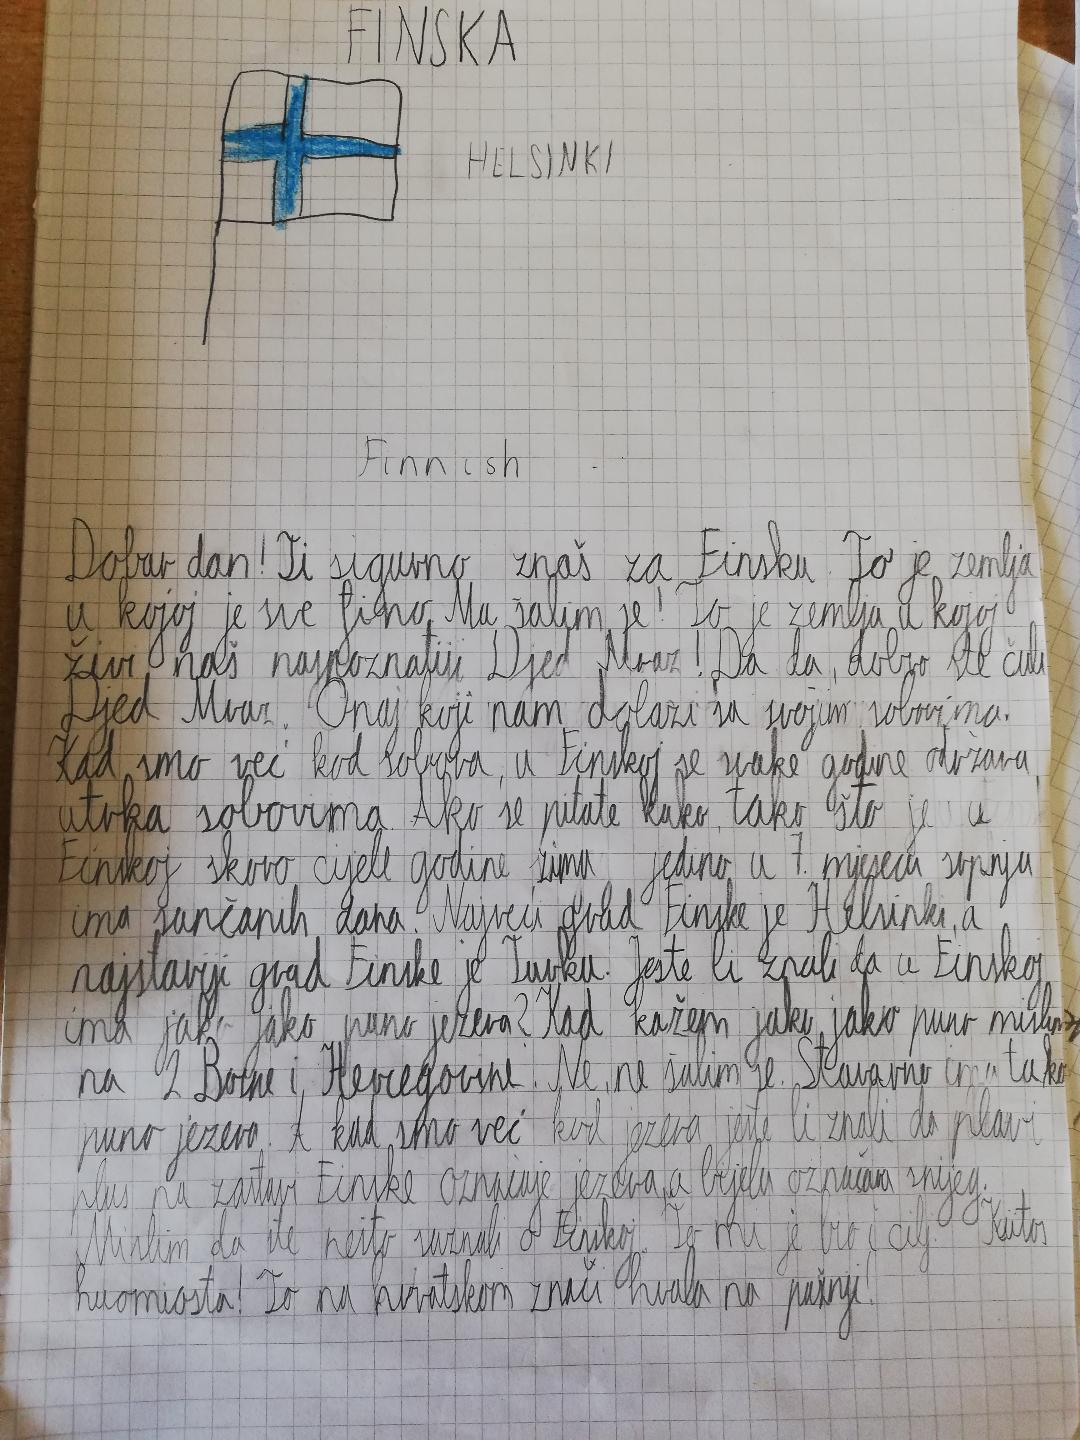 FINSKA
HELSINKI
Finnish
Dobar dan! Ti sigurno znaš za Finsku. To je zemlja
u kojoj je sve fino. Ma šalim se! To je zemlja u kojoj
živi naš najpoznatiji Djed Mraz! Da da, dobro ste čuli
Djed Mraz. Onaj koji nam dolazi sa svojim sobovima.
Kad smo već kod sobova, u Finskoj se svake godine održava
utrka sobovima. Ako se pitate kako tako što je u
Finskoj skoro cijele godine zima jedino u 7. mjesecu srpnju
ima sunčanih dana. Najveći grad Finske je Helsinki, a
najstariji grad Finske je Turku. Jeste li znali da u Finskoj
ima jako jako puno jezera? Kad kažem jako jako puno mislim
na 2 Bosne i Hercegovine. Ne, ne šalim se. Stavarno ima tako
puno jezera. A kad smo već kod jezera jeste li znali da plavi
plus na zastavi Finske označuje jezera, a bijela označava snijeg.
Mislim da ste nešto saznali o Finskoj. To mi je bio i cilj. Kiitos
huomiosta! To na hrvatskom znači hvala na pažnji!